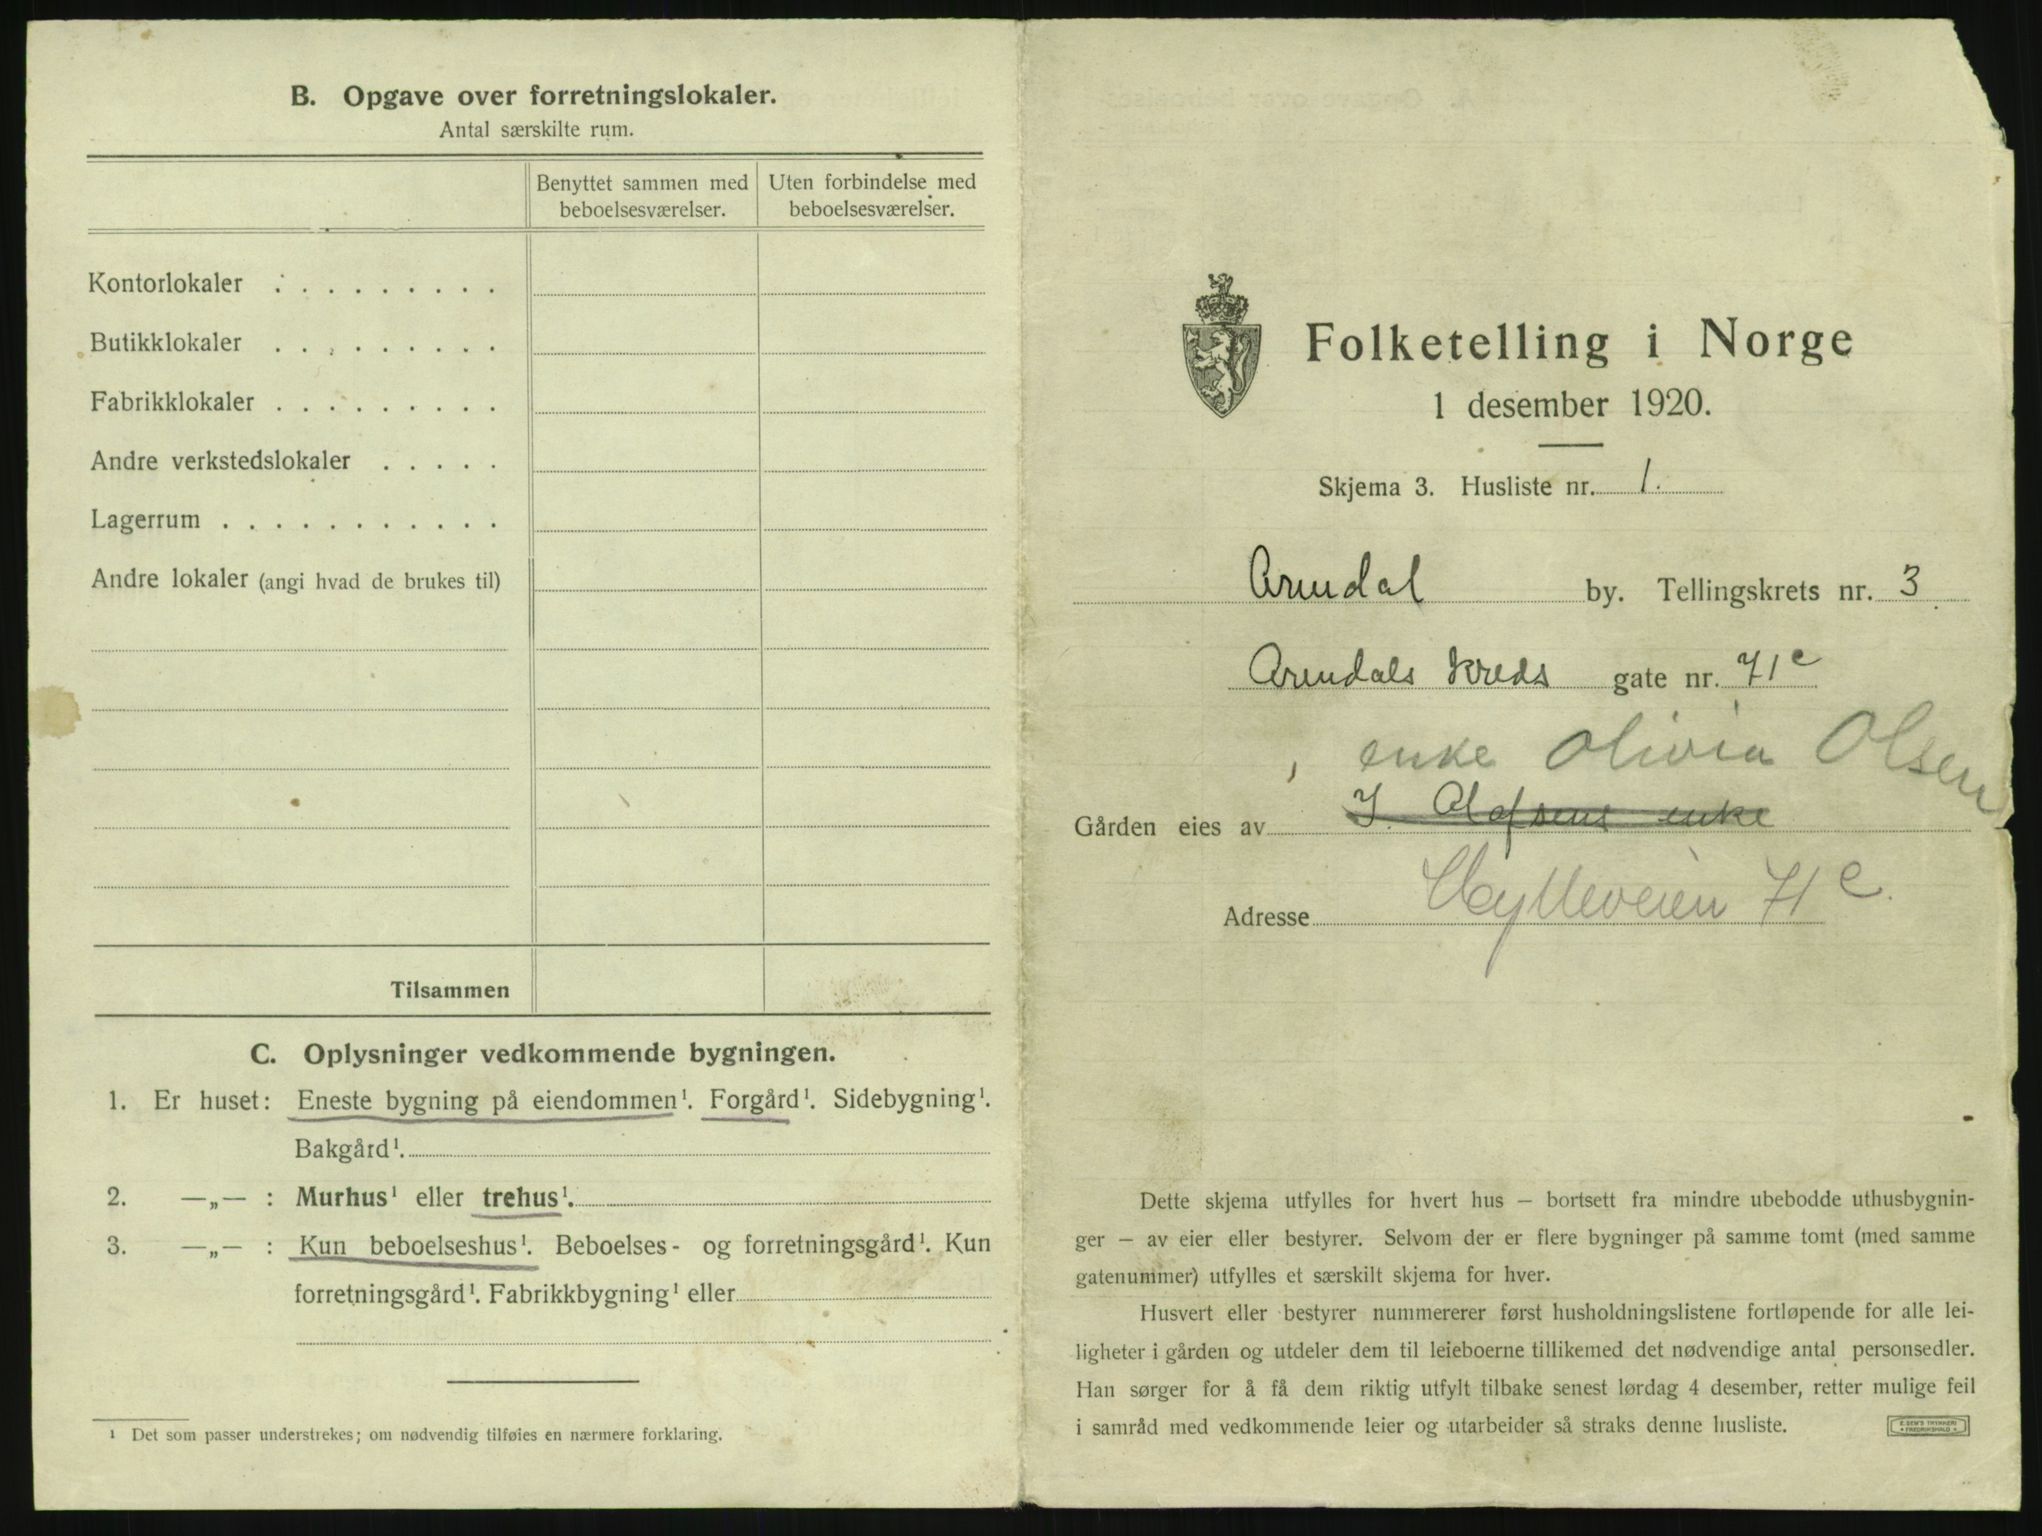 B. Opgave over forretningslokaler.
Antal særskilte rum.
Benyttet sammen med beboelsesværelser.
Uten forbindelse med beboelsesværelser.
Kontorlokaler . . . . . . . . .
Butikklokaler . . . . . . . . .
Fabrikklokaler . . . . . . . . .
Andre verkstedslokaler . . . . .
Lagerrum . . . . . . . . . . . .
Andre lokaler (angi hvad de brukes til)
Tilsammen
C. Oplysninger vedkommende bygningen.
1. Er huset: Eneste bygning på eiendommen¹. Forgård¹. Sidebygning¹.
Bakgård¹.
2. —„— : Murhus¹ eller trehus¹.
3. —„— : Kun beboelseshus¹. Beboelses- og forretningsgård¹. Kun
forretningsgård¹. Fabrikkbygning¹ eller
¹ Det som passer understrekes; om nødvendig tilføies en nærmere forklaring.
Folketelling i Norge
1 desember 1920.
Skjema 3. Husliste nr. 1.
Arendal by. Tellingskrets nr. 3
Arendals Kreds gate nr. 71c
enke Olivia Olsen
Gården eies av J. Olofsens enke
Adresse Hylleveien 71c.
Dette skjema utfylles for hvert hus — bortsett fra mindre ubebodde uthusbygnin-
ger — av eier eller bestyrer. Selvom der er flere bygninger på samme tomt (med samme
gatenummer) utfylles et særskilt skjema for hver.
Husvert eller bestyrer nummererer først husholdningslistene fortløpende for alle lei-
ligheter i gården og utdeler dem til leieboerne tillikemed det nødvendige antal personsedler.
Han sørger for å få dem riktig utfylt tilbake senest lørdag 4 desember, retter mulige feil
i samråd med vedkommende leier og utarbeider så straks denne husliste.
E. SEM'S TRYKKERI
FREDRIKSHALD